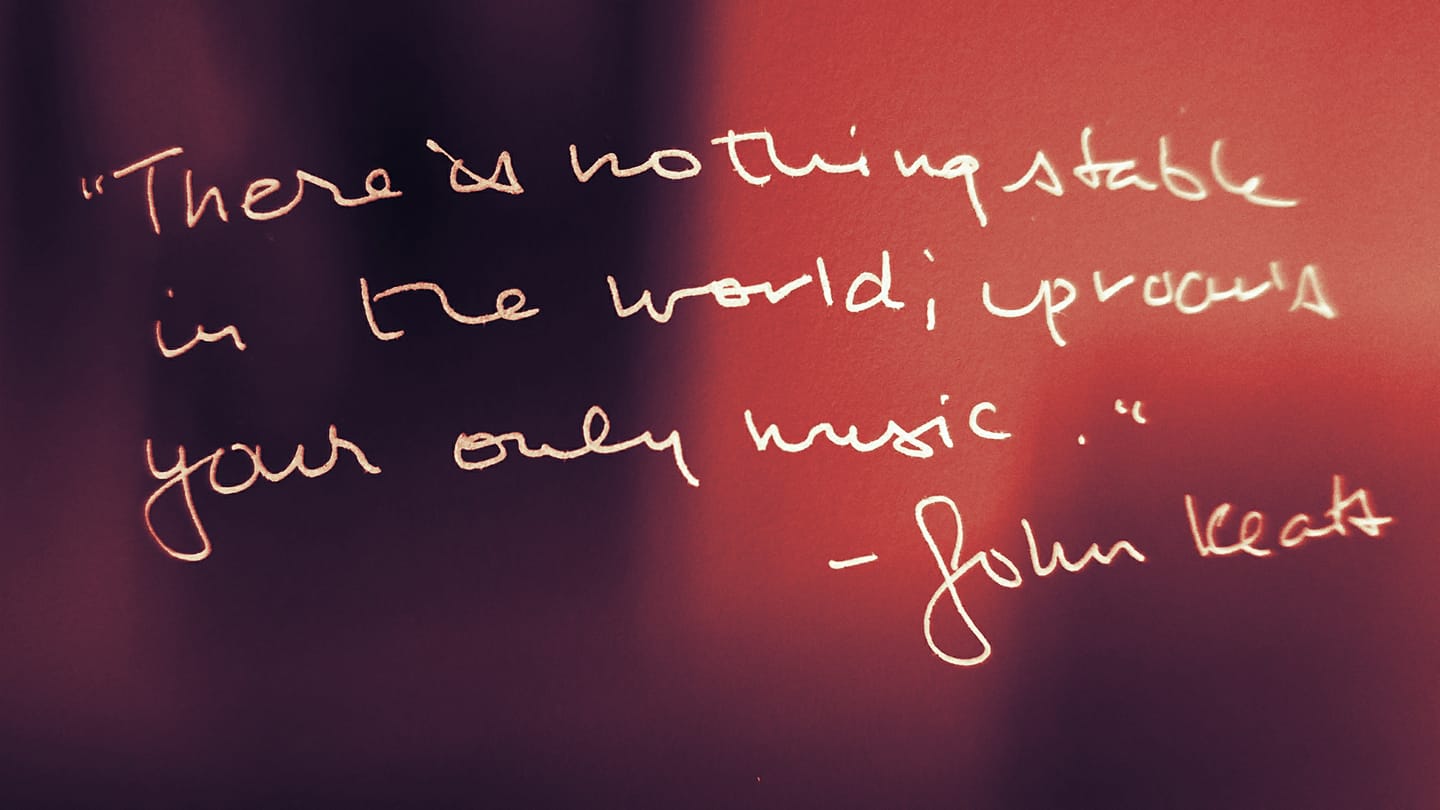 "There is nothing stable
in the world; uproar's
your only music."
- John Keats